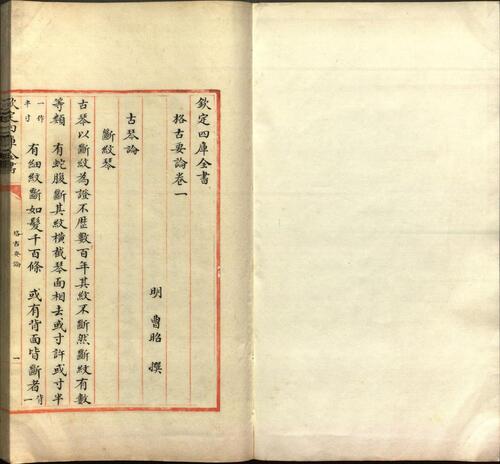 欽定四庫全書
格古要論卷一
明 曹昭 撰
古琴論
斷紋琴
古琴以斷紋為證不歷數百年其紋不斷然斷紋有數
等類 有蛇腹斷其紋橫截琴面相去或寸許或寸半
一作半寸 有細紋斷如髮千百條 或有背面皆斷者
欽定四庫全書
格古要論
一